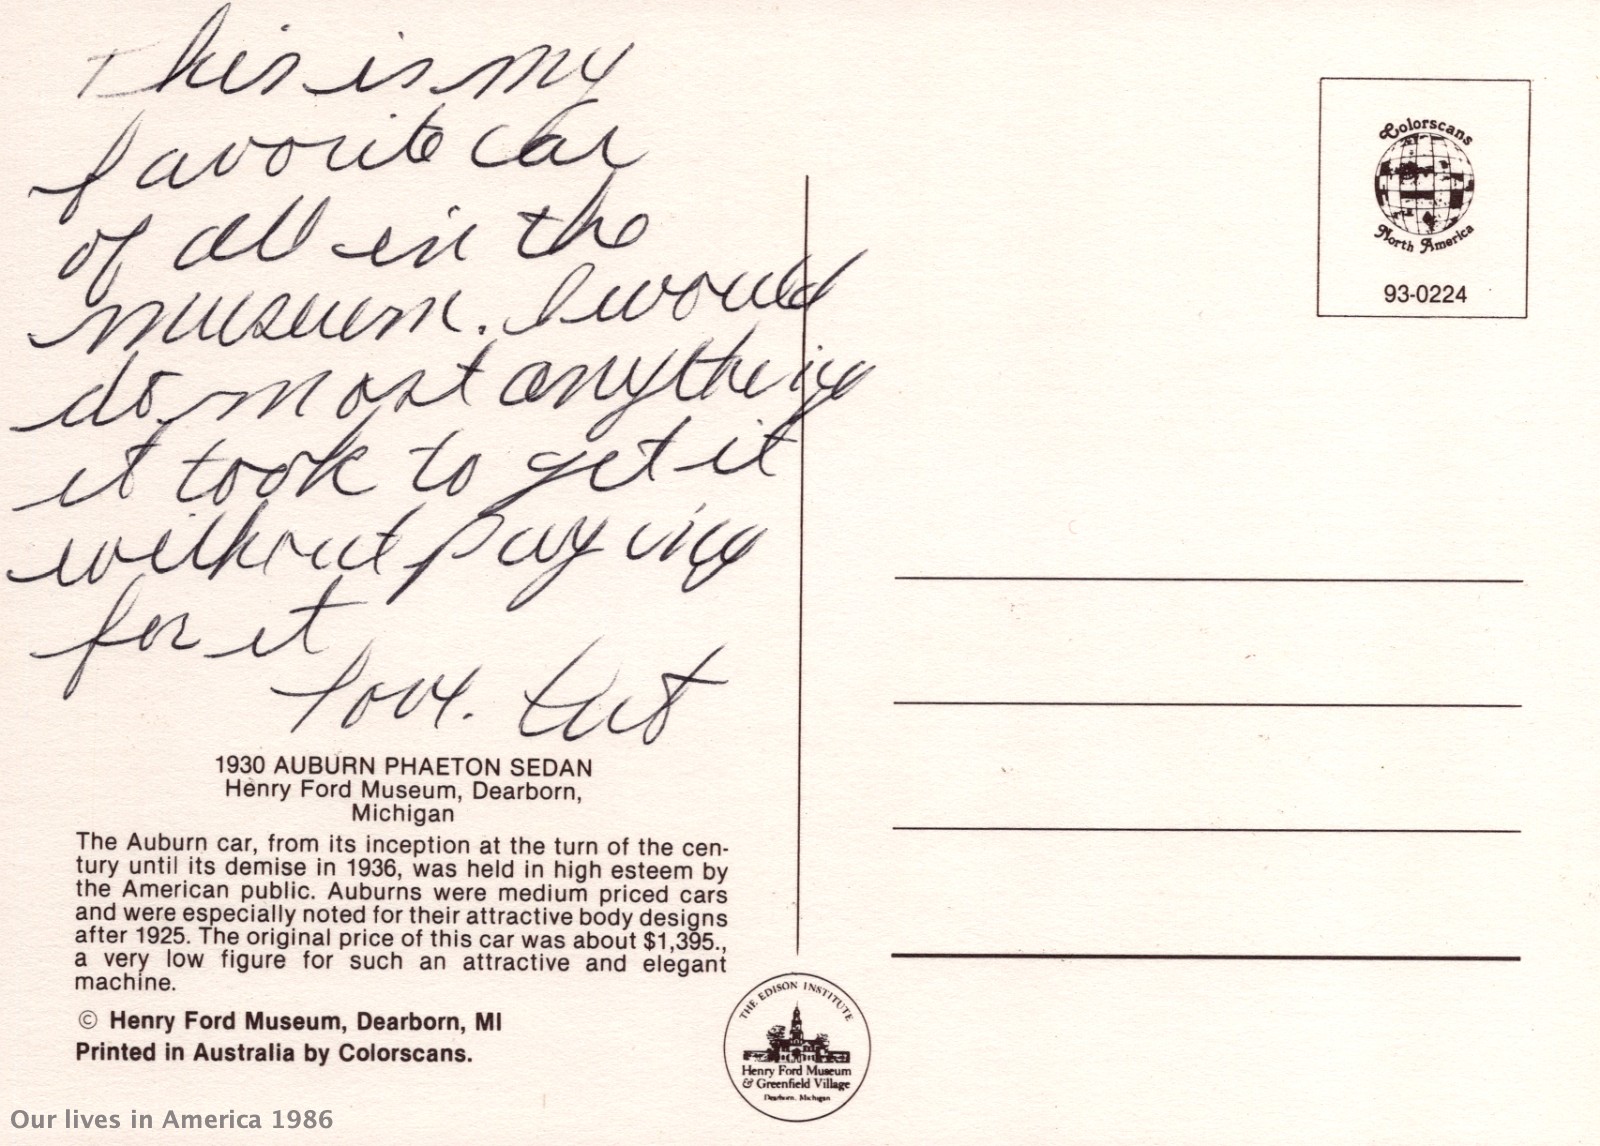 This is my
favorite car
of all in the
museum. I would
do most anything
it took to get it
without paying
for it
Love.
1930 AUBURN PHAETON SEDAN
Henry Ford Museum, Dearborn,
Michigan
The Auburn car, from its inception at the turn of the cen-
tury until its demise in 1936, was held in high esteem by
the American public. Auburns were medium priced cars
and were especially noted for their attractive body designs
after 1925. The original price of this car was about $1,395.,
a very low figure for such an attractive and elegant
machine.
© Henry Ford Museum, Dearborn, MI
Printed in Australia by Colorscans.
Colorscans
North America
93-0224
THE EDISON INSTITUTE
Henry Ford Museum
& Greenfield Village
Dearborn, Michigan
Our lives in America 1986